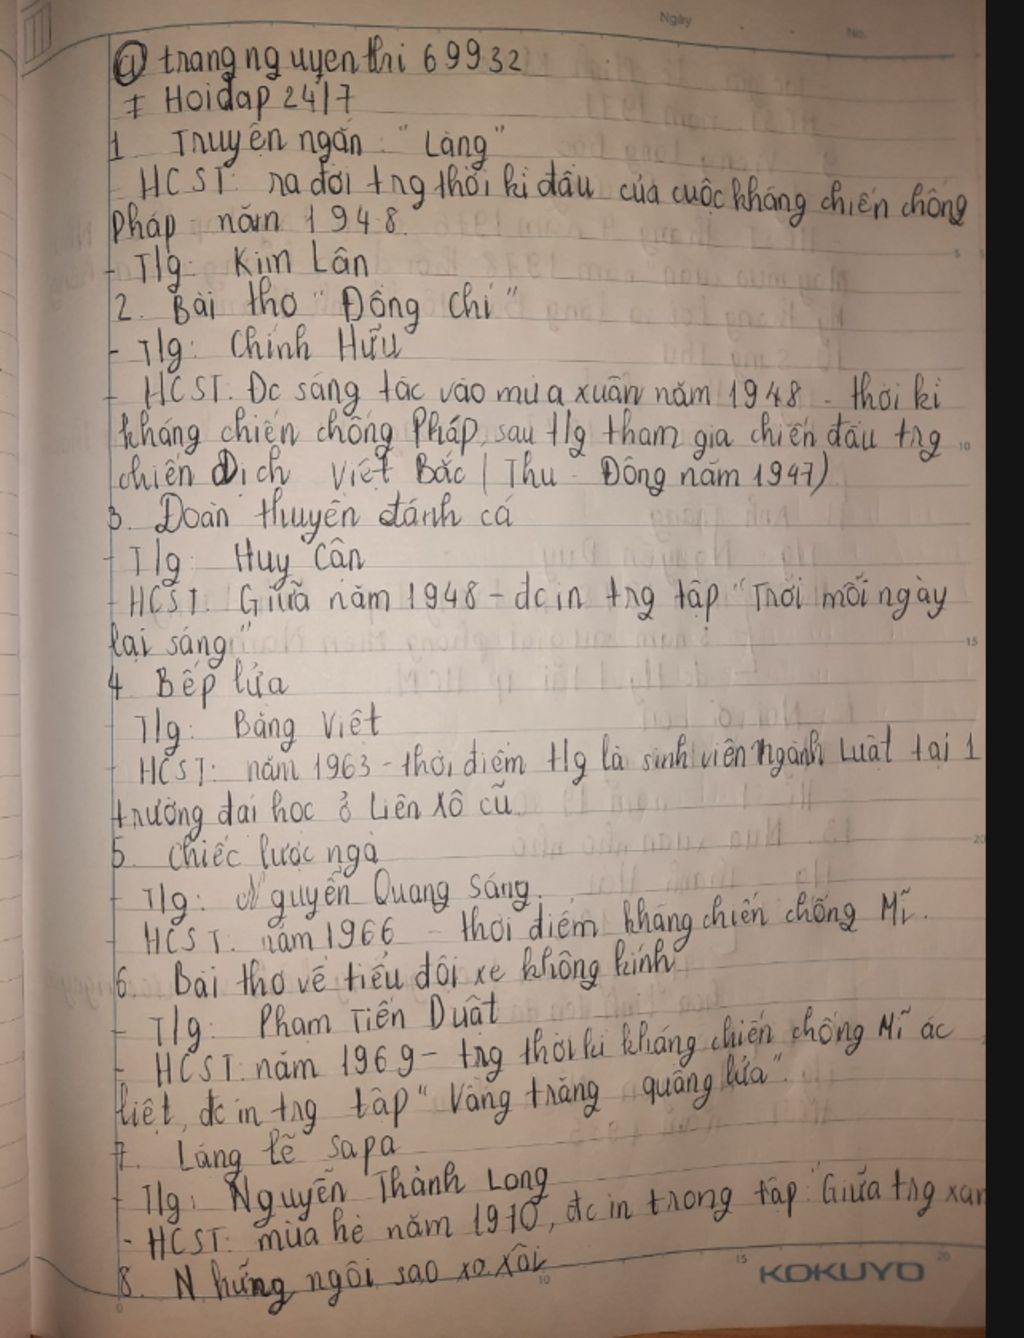 Ngày
No.
@ trangnguyenthi 69932
# Hoidap 24/7
1. Truyện ngắn: "Làng"
- HCST: ra đời trg thời kì đầu của cuộc kháng chiến chống
Pháp - năm 1948.
- T/g: Kim Lân
2. Bài thơ "Đồng chí"
- T/g: Chính Hữu
- HCST: Đc sáng tác vào mùa xuân năm 1948 - thời kì
kháng chiến chống Pháp, sau t/g tham gia chiến đấu trg
chiến Dịch Việt Bắc (Thu - Đông năm 1947)
3. Đoàn thuyền đánh cá
- T/g: Huy Cận
- HCST: Giữa năm 1948 - đc in trg tập "Trời mỗi ngày
lại sáng"
4. Bếp lửa
- T/g: Bằng Việt
- HCST: năm 1963 - thời điểm t/g là sinh viên ngành Luật tại 1
trường đại học ở Liên Xô cũ.
5. Chiếc lược ngà
- T/g: Nguyễn Quang Sáng.
- HCST: năm 1966 - thời điểm kháng chiến chống Mĩ.
6. Bài thơ về tiểu đội xe không kính
- T/g: Phạm Tiến Duật
- HCST: năm 1969 - trg thời kì kháng chiến chống Mĩ ác
liệt, đc in trg tập "Vầng trăng quầng lửa".
7. Lặng lẽ sapa
- T/g: Nguyễn Thành Long
- HCST: mùa hè năm 1970, đc in trong tập: Giữa trg xan
8. Những ngôi sao xa xôi
KOKUYO